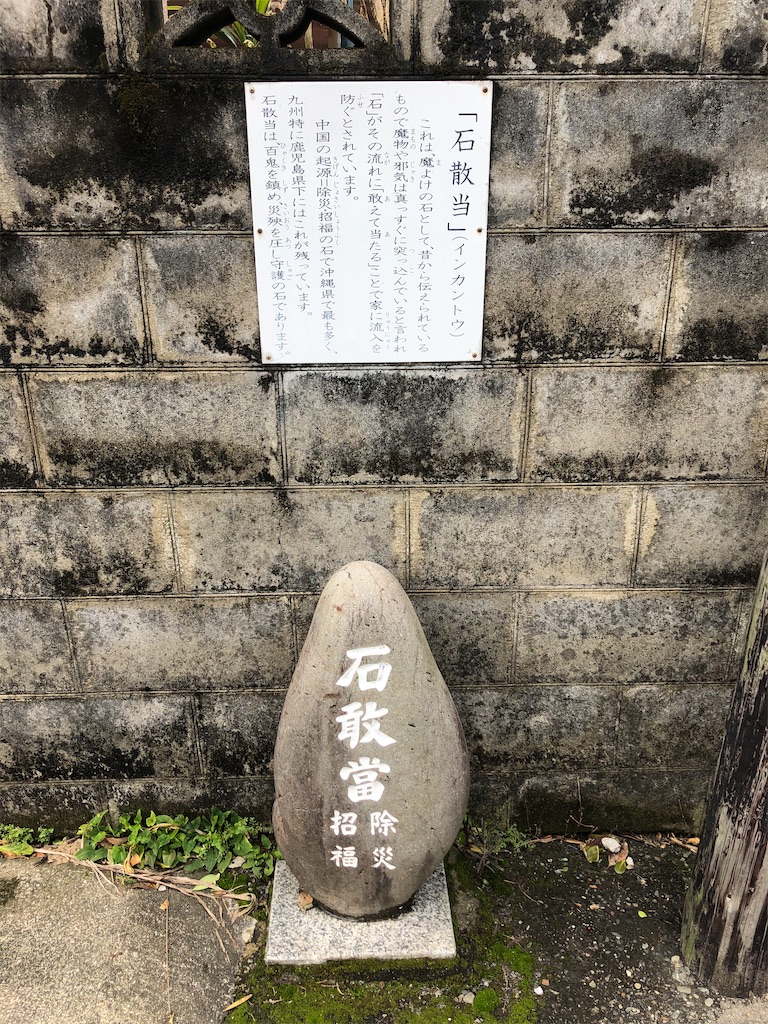 「石散当」(インカントウ)
これは魔よけの石として、昔から伝えられている
もので魔物や邪気は真っすぐに突っ込んでいると言われ
「石」がその流れに「敢えて当たる」ことで家に流入を
防ぐとされています。
中国の起源=除災招福の石で沖縄県で最も多く、
九州特に鹿児島県下にはこれが残っています。
石散当は、百鬼を鎮め、災殃を圧し守護の石であります。
石敢當
除災
招福